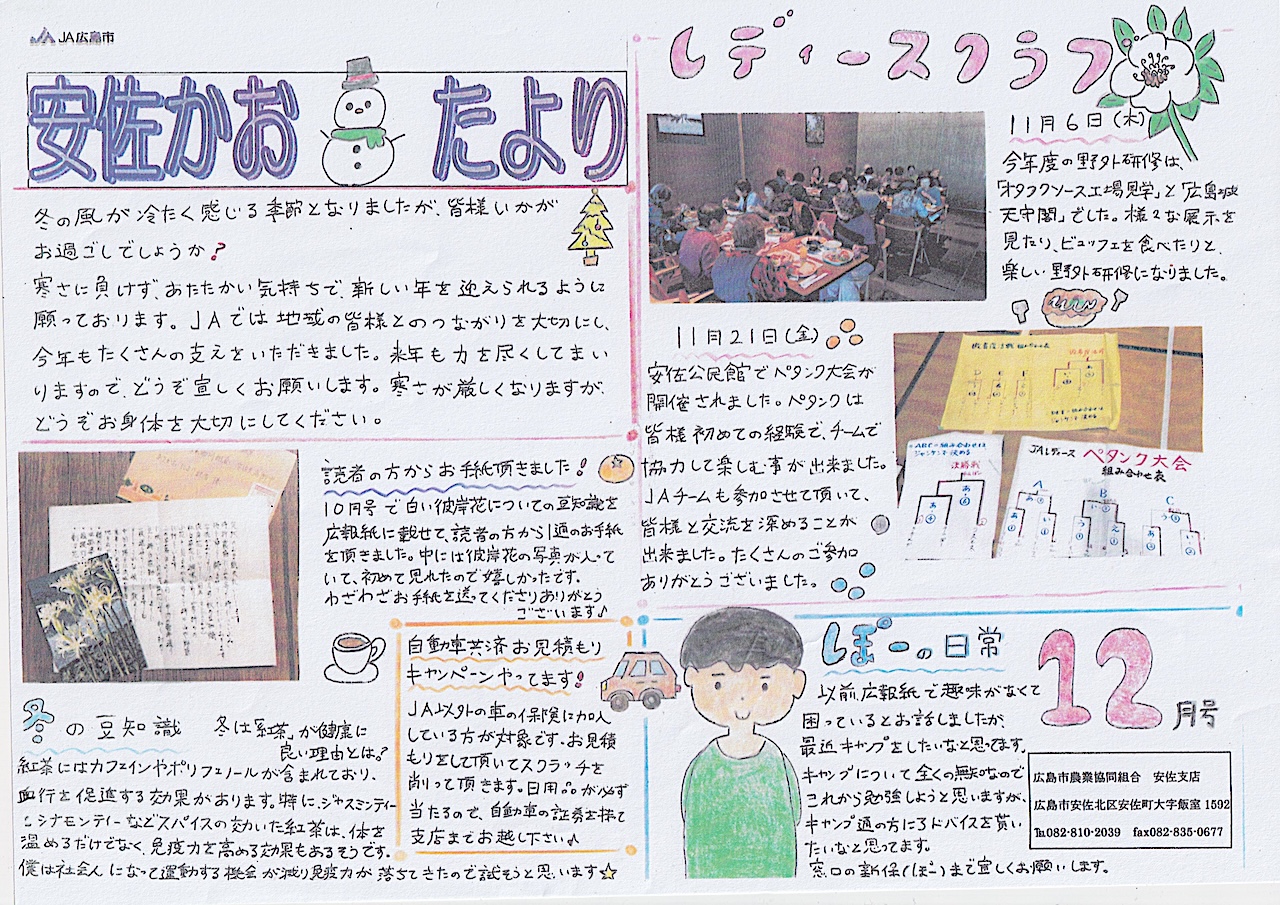 JA広島市
安佐かお たより
冬の風が冷たく感じる季節となりましたが、皆様いかが
お過ごしでしょうか?
寒さに負けず、あたたかい気持ちで、新しい年を迎えられるように
願っております。JAでは地域の皆様とのつながりを大切にし、
今年もたくさんの支えをいただきました。来年も力を尽くしてまい
りますので、どうぞ宜しくお願いします。寒さが厳しくなりますが、
どうぞお身体を大切にしてください。
読者の方からお手紙頂きました!
10月号で白い彼岸花についての豆知識を
広報紙に載せて、読者の方から1通のお手紙
を頂きました。中には彼岸花の写真が入って
いて、初めて見れたので嬉しかったです。
わざわざお手紙を送ってくださりありがとう
ございます♪
冬の豆知識 冬は「紅茶」が健康に
良い理由とは?
紅茶にはカフェインやポリフェノールが含まれており、
血行を促進する効果があります。特に、ジャスミンティー
シナモンティーなどスパイスの効いた紅茶は、体を
温めるだけでなく、免疫力を高める効果もあるそうです。
僕は社会人になって運動する機会が減り免疫力が落ちてきたので試そうと思います☆
自動車共済お見積もり
キャンペーンやってます!
JA以外の車の保険に加入
している方が対象です。お見積
もりをして頂いてスクラッチを
削って頂きます。日用品が必ず
当たるので、自動車の証券を持って
支店までお越し下さい♪
レディースクラブ
11月6日(木)
今年度の野外研修は、
「オタフクソース工場見学」と「広島城
天守閣」でした。様々な展示を
見たり、ビュッフェを食べたりと、
楽しい野外研修になりました。
11月21日(金)
安佐公民館でペタンク大会が
開催されました。ペタンクは
皆様初めての経験で、チームで
協力して楽しむ事が出来ました。
JAチームも参加させて頂いて、
皆様と交流を深めることが
出来ました。たくさんのご参加
ありがとうございました。
決勝戦
JAレディース ペタンク大会
組み合わせ表
A
B
C
ぽーの日常
以前、広報紙で趣味がなくて
困っているとお話しましたが、
最近キャンプをしたいなと思ってます。
キャンプについて全くの無知なので
これから勉強しようと思いますが、
キャンプ通の方にアドバイスを貰い
たいなと思ってます。
窓口の新保(ぽー)まで宜しくお願いします。
12月号
広島市農業協同組合 安佐支店
広島市安佐北区安佐町大字飯室1592
℡082-810-2039 fax082-835-0677